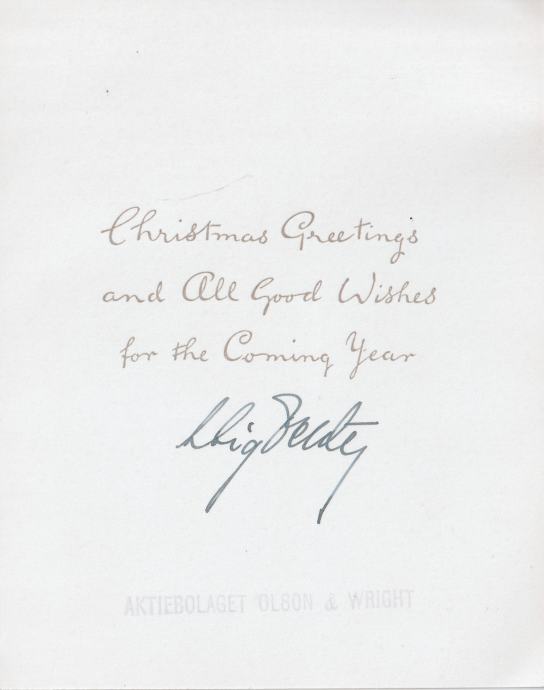 Christmas Greetings
and All Good Wishes
for the Coming Year
AKTIEBOLAGET OLSON & WRIGHT